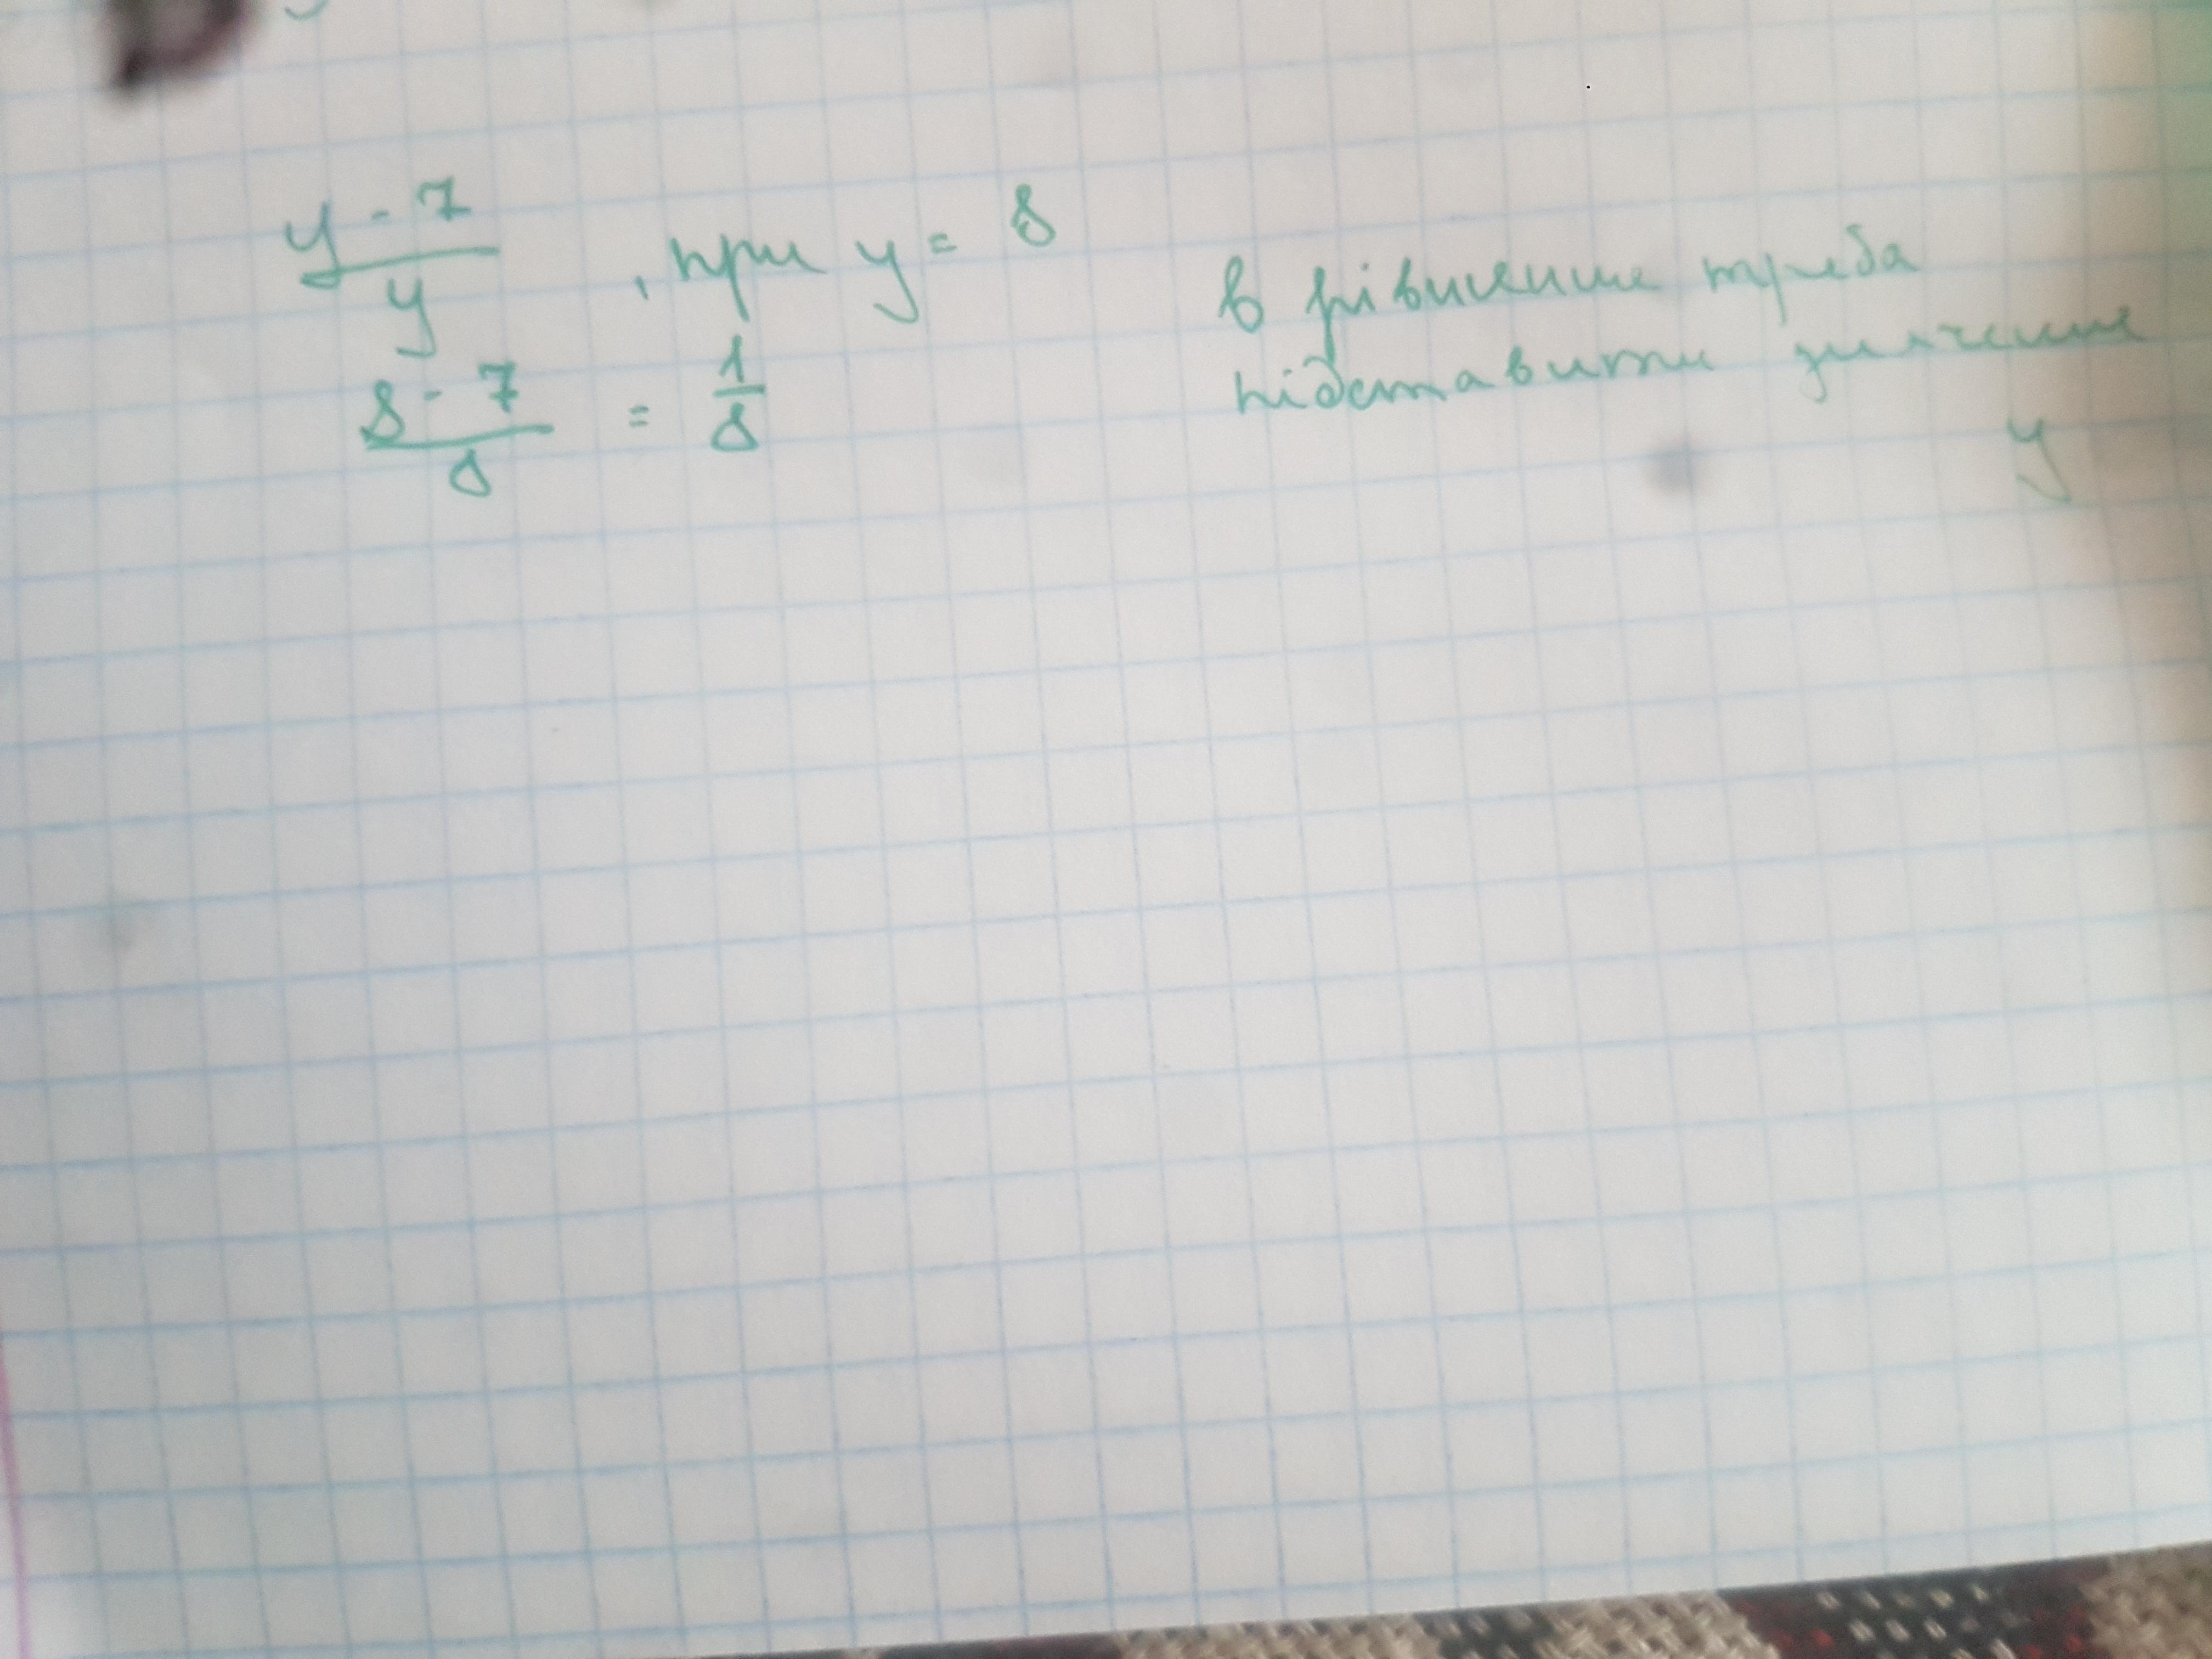 y - 7 / y , при y = 8
8 - 7 / 8 = 1 / 8
в рівнение треба
підставити значение
y